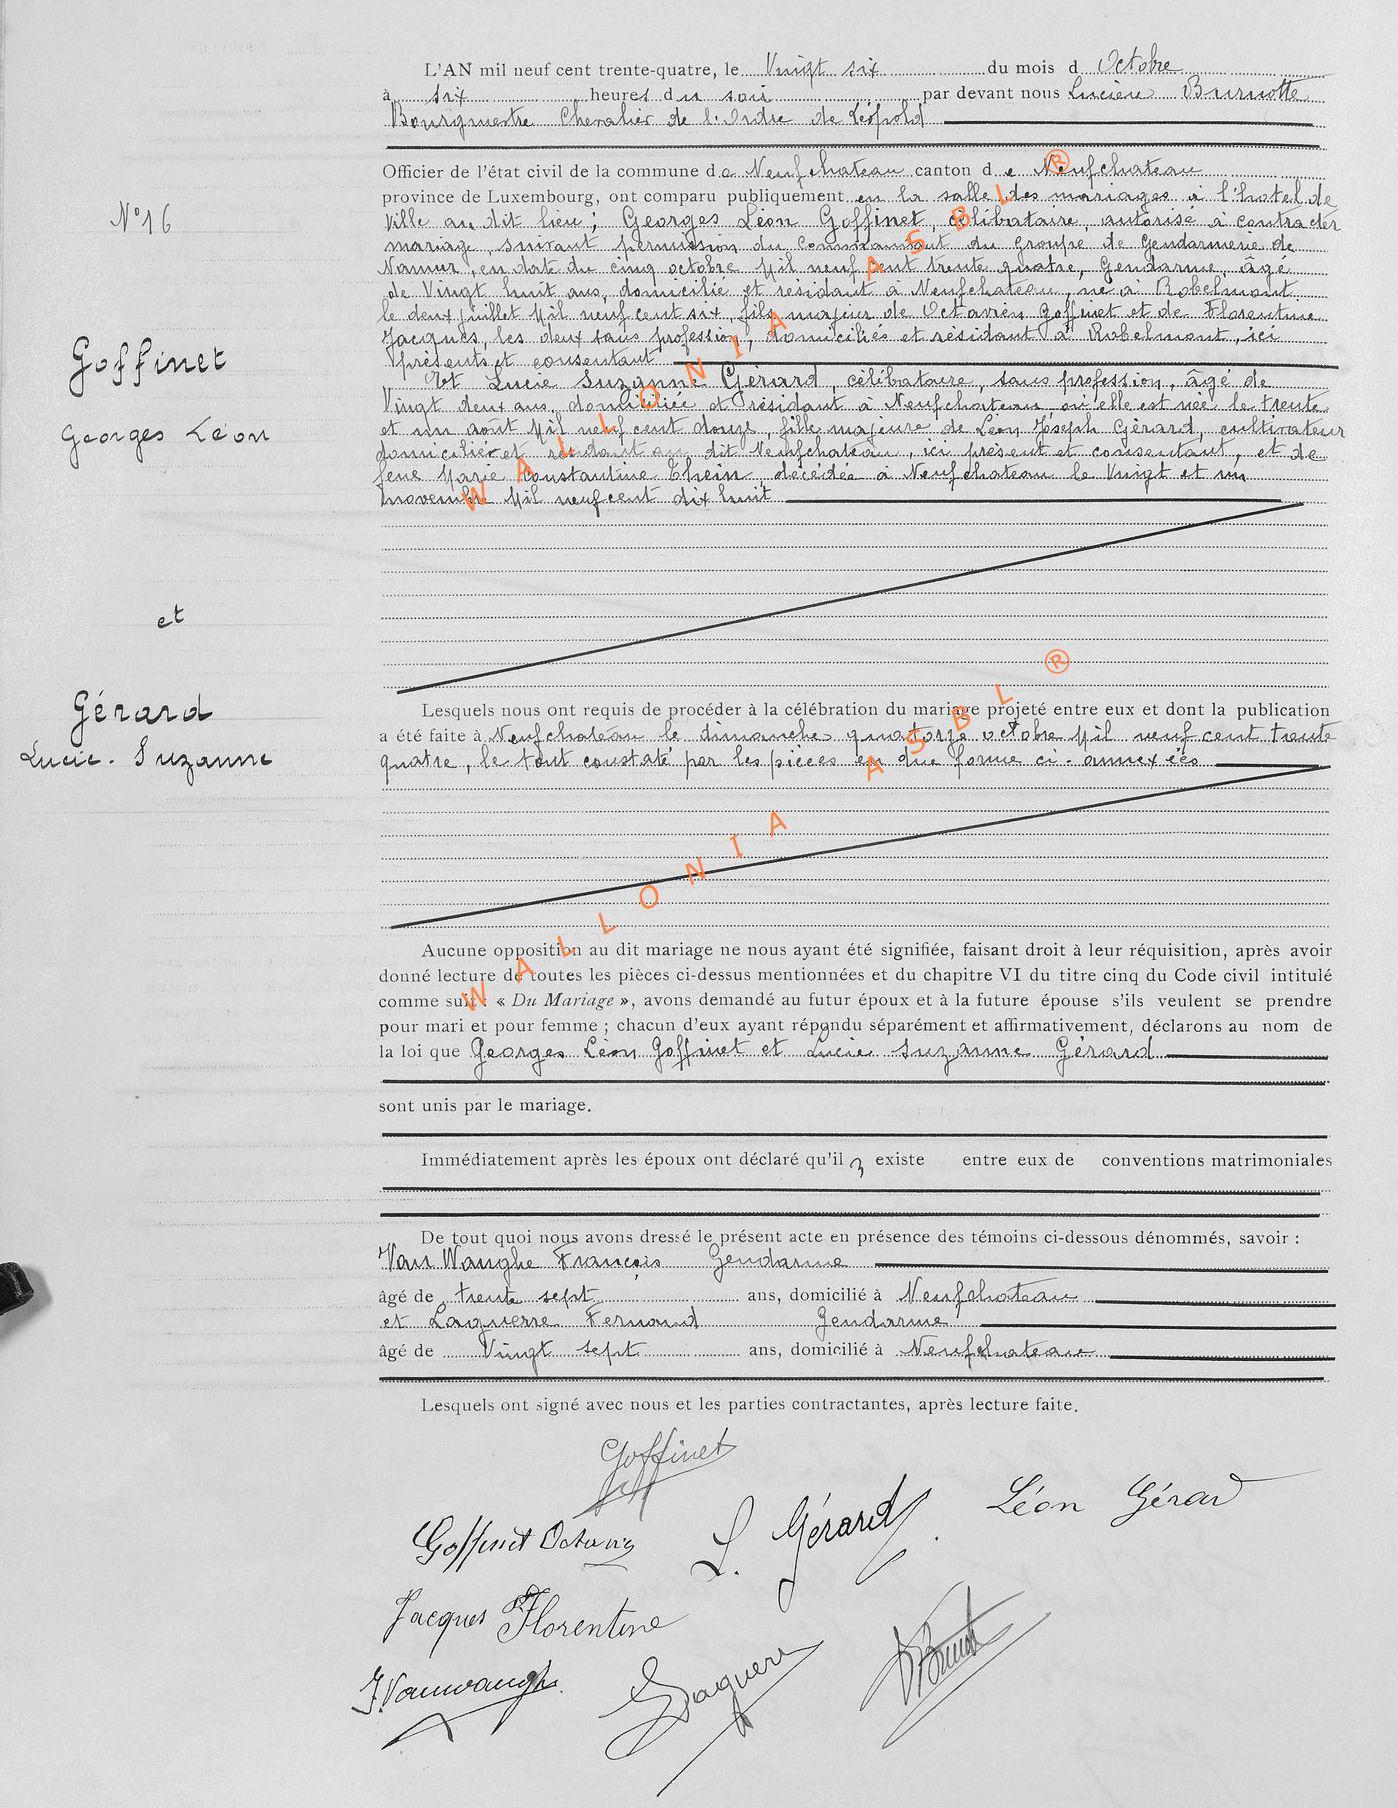 L'AN mil neuf cent trente-quatre, le Vingt six du mois d Octobre
à six heures du soir par devant nous Lucien Burnotte
Bourgmestre Chevalier de l'Ordre de Léopold
Officier de l'état civil de la commune de Neufchateau canton de Neufchateau
province de Luxembourg, ont comparu publiquement en la salle des mariages à l'hotel de
N° 16
Ville au dit lieu ; Georges Léon Goffinet, célibataire, autorisé à contracter
mariage, suivant permission du Commandant du groupe de Gendarmerie de
Namur, en date du cinq octobre Mil neuf cent trente quatre, Gendarme, âgé
de Vingt huit ans, domicilié et résidant à Neufchateau, né à Robelmont
le deux juillet Mil neuf cent six, fils majeur de Octavien Goffinet et de Florentine
Jacques, les deux sans profession, domiciliés et résidant à Robelmont, ici
présents et consentant
Goffinet
Georges Léon
Et Lucie Suzanne Gérard, célibataire, sans profession, âgé de
Vingt deux ans, domiciliée et résidant à Neufchateau où elle est née le trente
et un août Mil neuf cent douze, fille majeure de Léon Joseph Gérard, cultivateur
domicilié et résidant au dit Neufchateau, ici présent et consentant, et de
feue Marie Constantine Thein, décédée à Neufchateau le Vingt et un
novembre Mil neuf cent dix huit
WALLONIA ASBL ®
et
Gérard
Lucie - Suzanne
Lesquels nous ont requis de procéder à la célébration du mariage projeté entre eux et dont la publication
a été faite à Neufchateau le dimanche quatorze octobre Mil neuf cent trente
quatre, le tout constaté par les pièces en due forme ci-annexées
WALLONIA ASBL ®
Aucune opposition au dit mariage ne nous ayant été signifiée, faisant droit à leur réquisition, après avoir
donné lecture de toutes les pièces ci-dessus mentionnées et du chapitre VI du titre cinq du Code civil intitulé
comme suit : « Du Mariage », avons demandé au futur époux et à la future épouse s'ils veulent se prendre
pour mari et pour femme ; chacun d'eux ayant répondu séparément et affirmativement, déclarons au nom de
la loi que Georges Léon Goffinet et Lucie Suzanne Gérard
sont unis par le mariage.
Immédiatement après les époux ont déclaré qu'il existe entre eux de conventions matrimoniales
De tout quoi nous avons dressé le présent acte en présence des témoins ci-dessous dénommés, savoir :
Van Wanghe François Gendarme
âgé de trente sept ans, domicilié à Neufchateau
et Laguerre Fernand Gendarme
âgé de Vingt sept ans, domicilié à Neufchateau
Lesquels ont signé avec nous et les parties contractantes, après lecture faite.
Goffinet
Léon Gérard
L. Gérard
Goffinet
Jacques Florentine
F. Vanwanghe
Laguerre